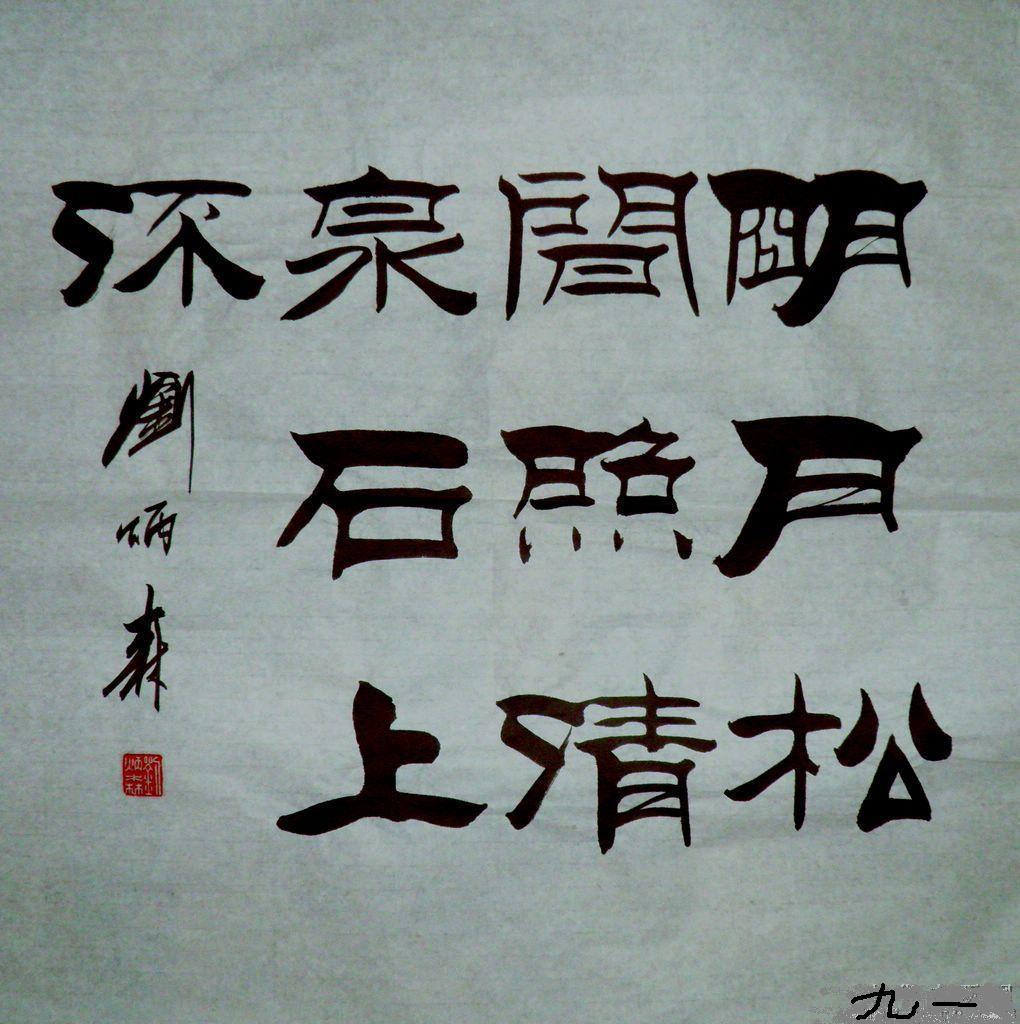 明月松
間照清
泉石上
流
劉炳森
劉炳森
九一